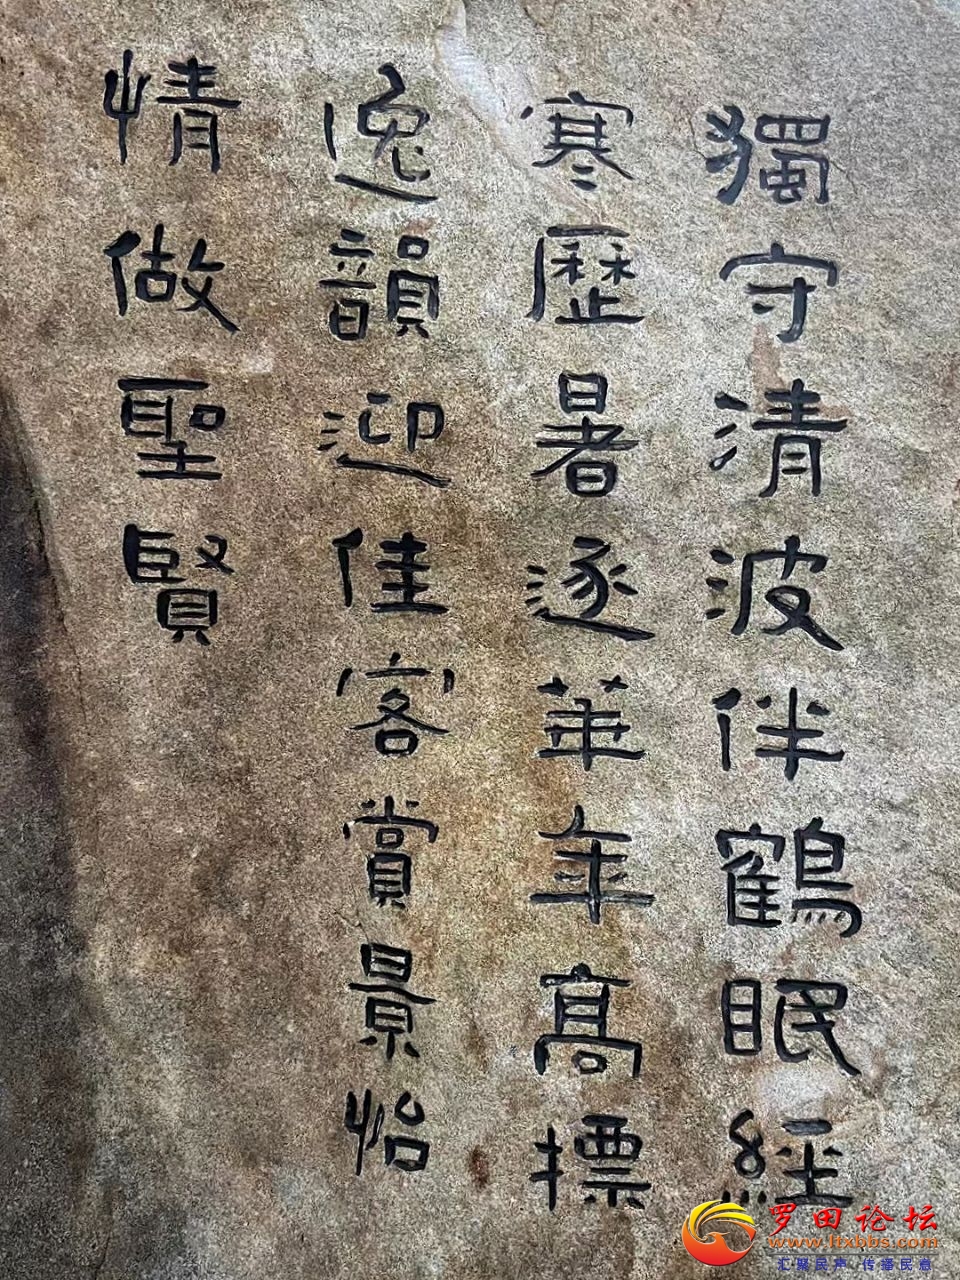 獨守清波伴鶴眠經
寒歷暑逐華年高標
逸韻迎佳客賞景怡
情做聖賢
罗田论坛
www.ltxbbs.com
汇聚民声 传播民意